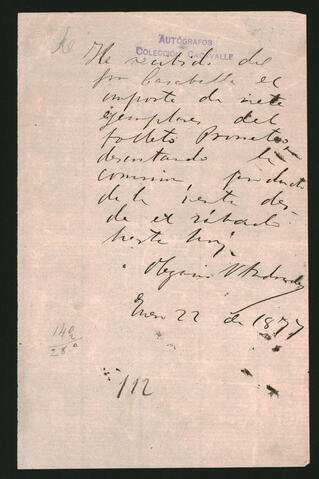 AUTÓGRAFOS
COLECCIÓN CASAVALLE
He recibido del
Sr Casavalle el
importe de siete
ejemplares del
folleto Prometeo
descontando la
comision, producto
de la venta des-
de el sábado
hasta hoy.
Olegario V Andrade
Enero 22 de 1877
142
28
112